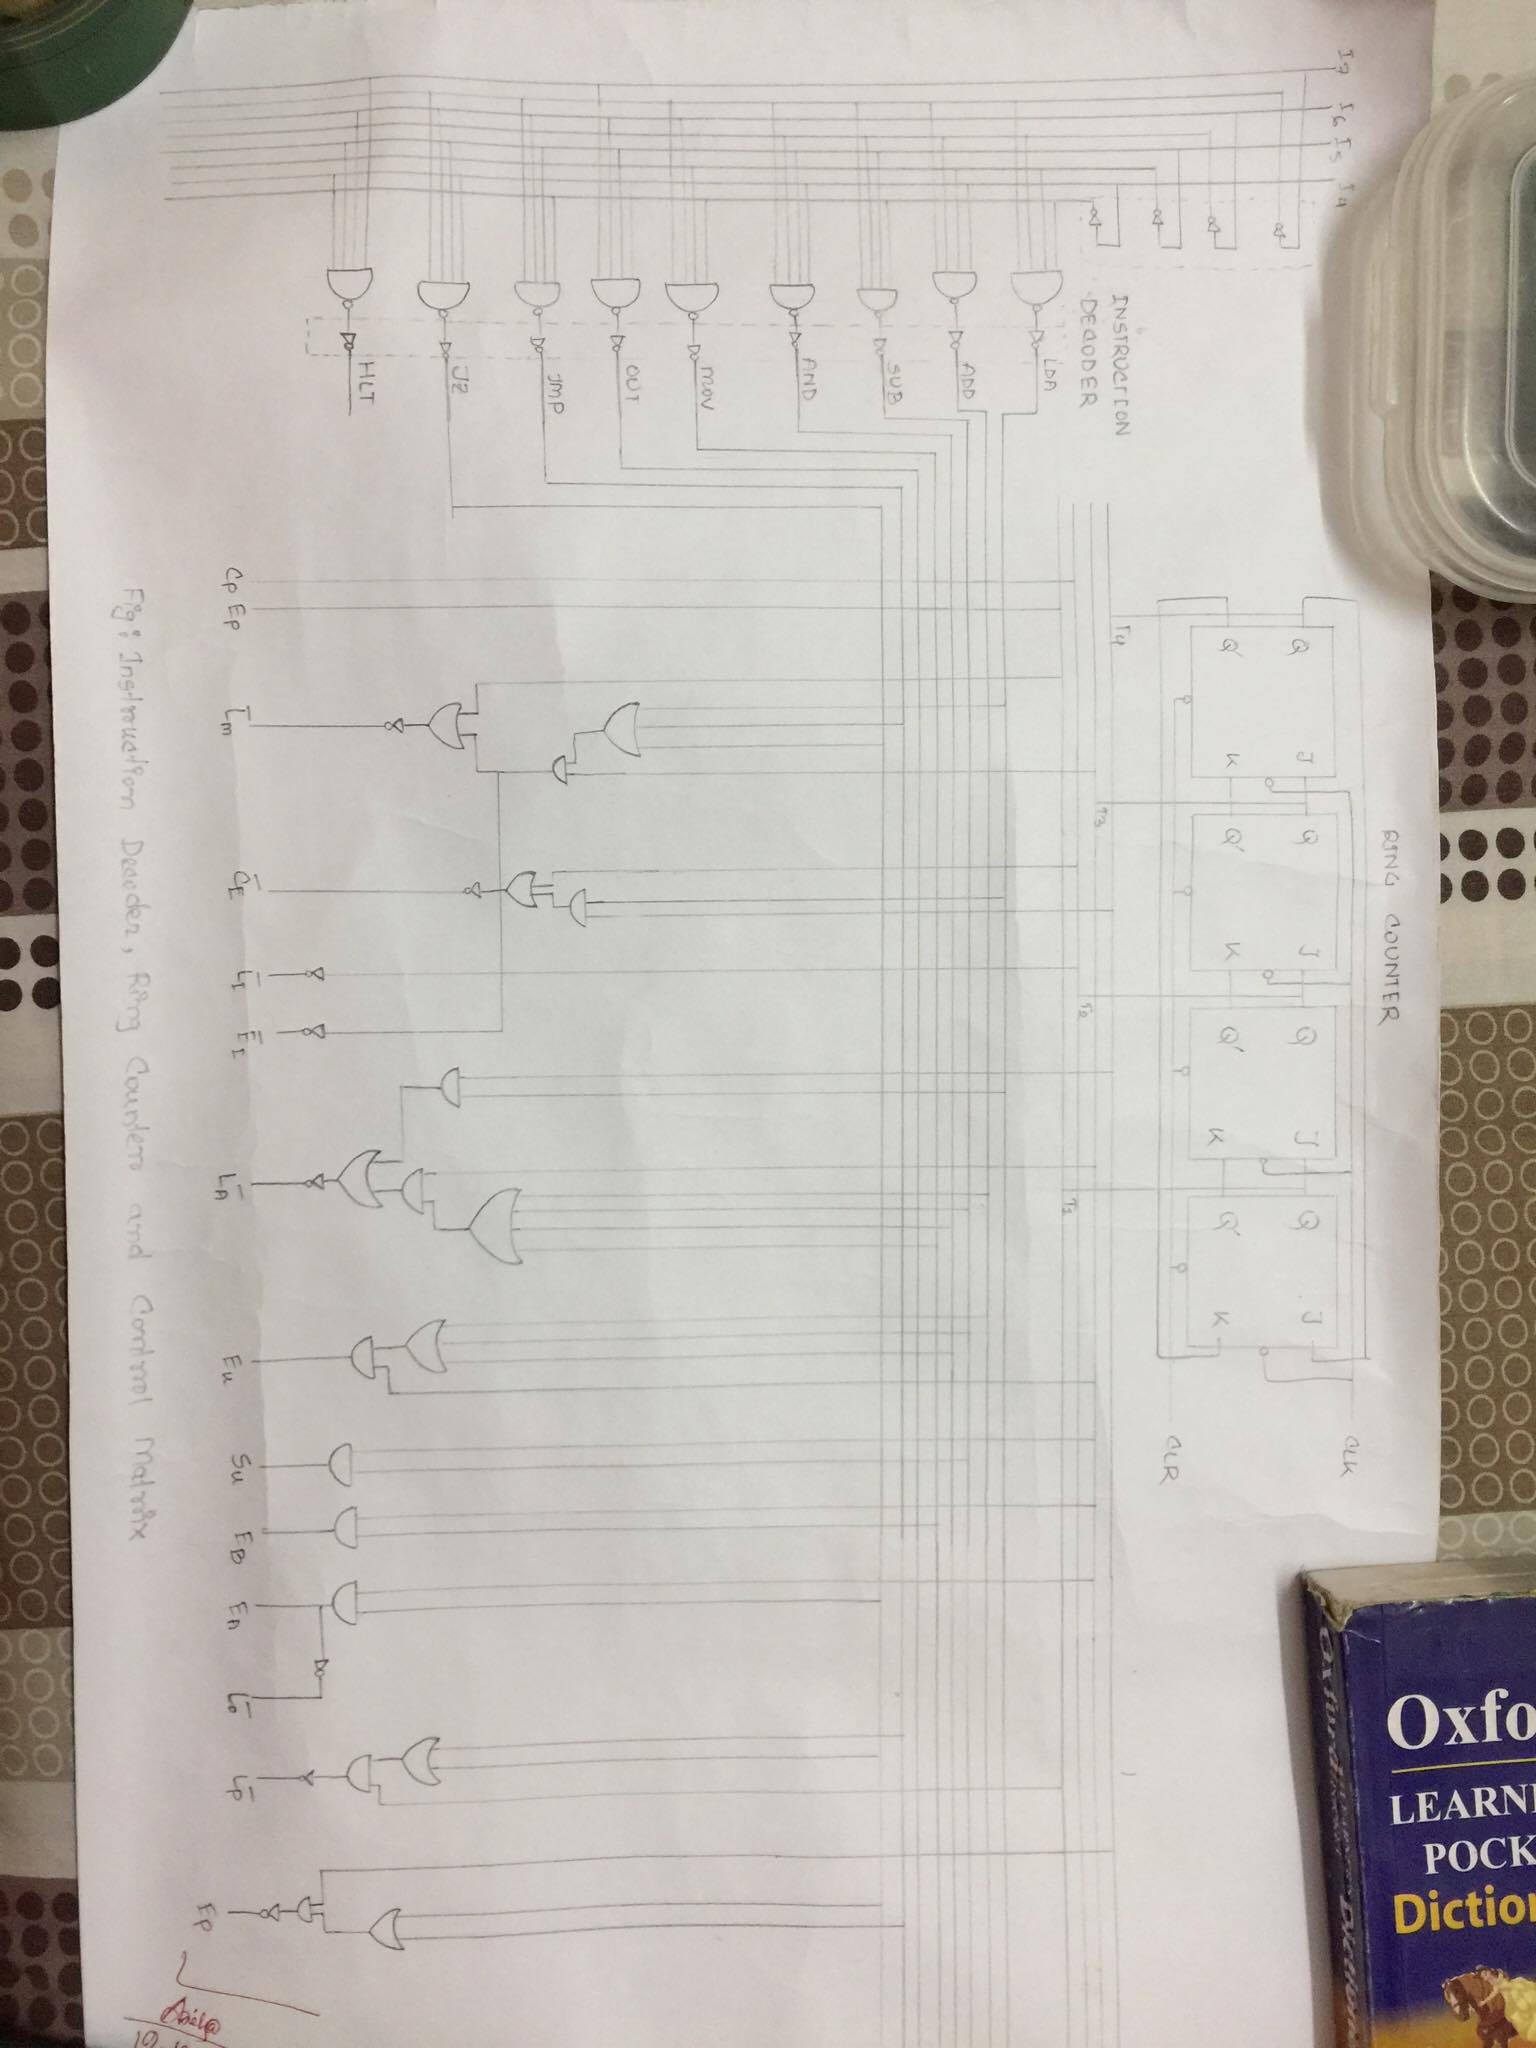 I7 I6 I5 I4
INSTRUCTION
DECODER
LDA
ADD
SUB
AND
MOV
OUT
JMP
JZ
HLT
RING COUNTER
Q J Q J Q J Q J
Q' K Q' K Q' K Q' K
CLK
CLR
T4 T3 T2 T1
Cp Ep L̅m C̅E L̅I E̅I L̅A Eu Su EB EA L̅o L̅p Ep
Fig: Instruction Decoder, Ring Counter and Control Matrix
Oxfo
LEARN
POCK
Diction